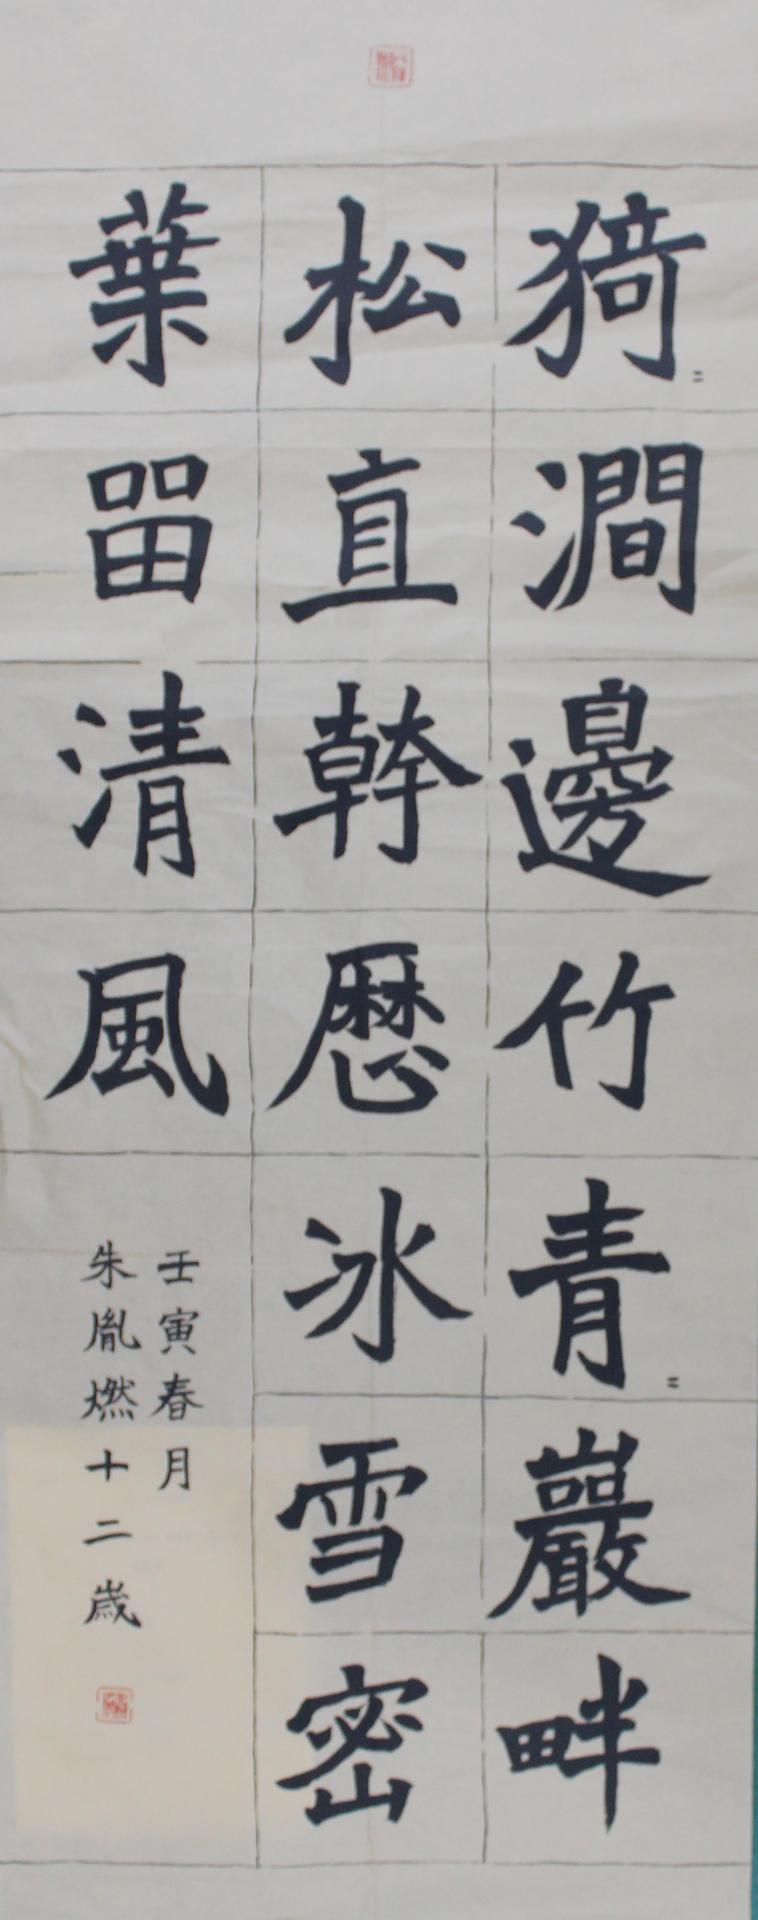 猗〻澗邊竹青〻巖畔
松直幹歷冰雪密
葉留清風
壬寅春月
朱胤燃十二歲